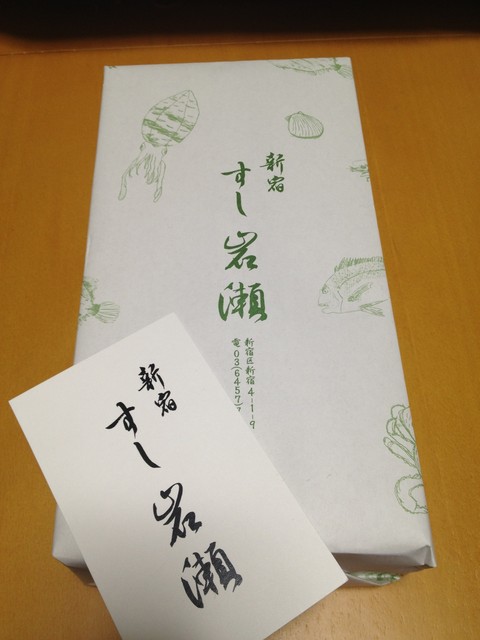 新宿
すし岩瀬
新宿区新宿4-1-9
電03(6457)
新宿
すし岩瀬